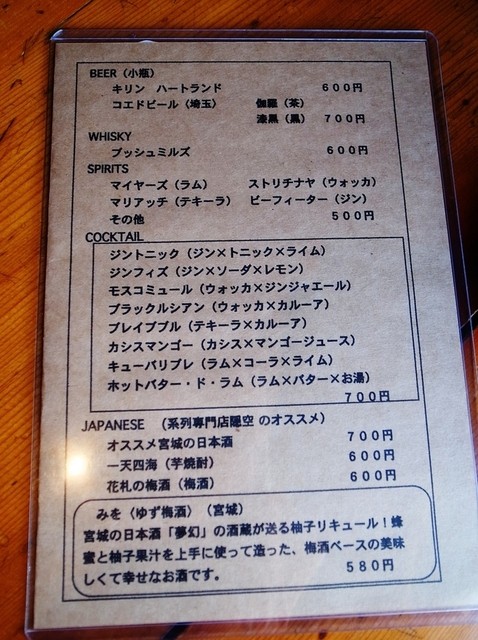 BEER（小瓶）
キリン　ハートランド　600円
コエドビール〈埼玉〉　伽羅（茶）
漆黒（黒）　700円
WHISKY
ブッシュミルズ　600円
SPIRITS
マイヤーズ（ラム）　ストリチナヤ（ウォッカ）
マリアッチ（テキーラ）　ビーフィーター（ジン）
その他　500円
COCKTAIL
ジントニック（ジン×トニック×ライム）
ジンフィズ（ジン×ソーダ×レモン）
モスコミュール（ウォッカ×ジンジャエール）
ブラックルシアン（ウォッカ×カルーア）
ブレイブブル（テキーラ×カルーア）
カシスマンゴー（カシス×マンゴージュース）
キューバリブレ（ラム×コーラ×ライム）
ホットバター・ド・ラム（ラム×バター×お湯）
700円
JAPANESE　（系列専門店隠空 のオススメ）
オススメ宮城の日本酒　700円
一天四海（芋焼酎）　600円
花札の梅酒（梅酒）　600円
みを〈ゆず梅酒〉（宮城）
宮城の日本酒「夢幻」の酒蔵が送る柚子リキュール！蜂
蜜と柚子果汁を上手に使って造った、梅酒ベースの美味
しくて幸せなお酒です。　580円